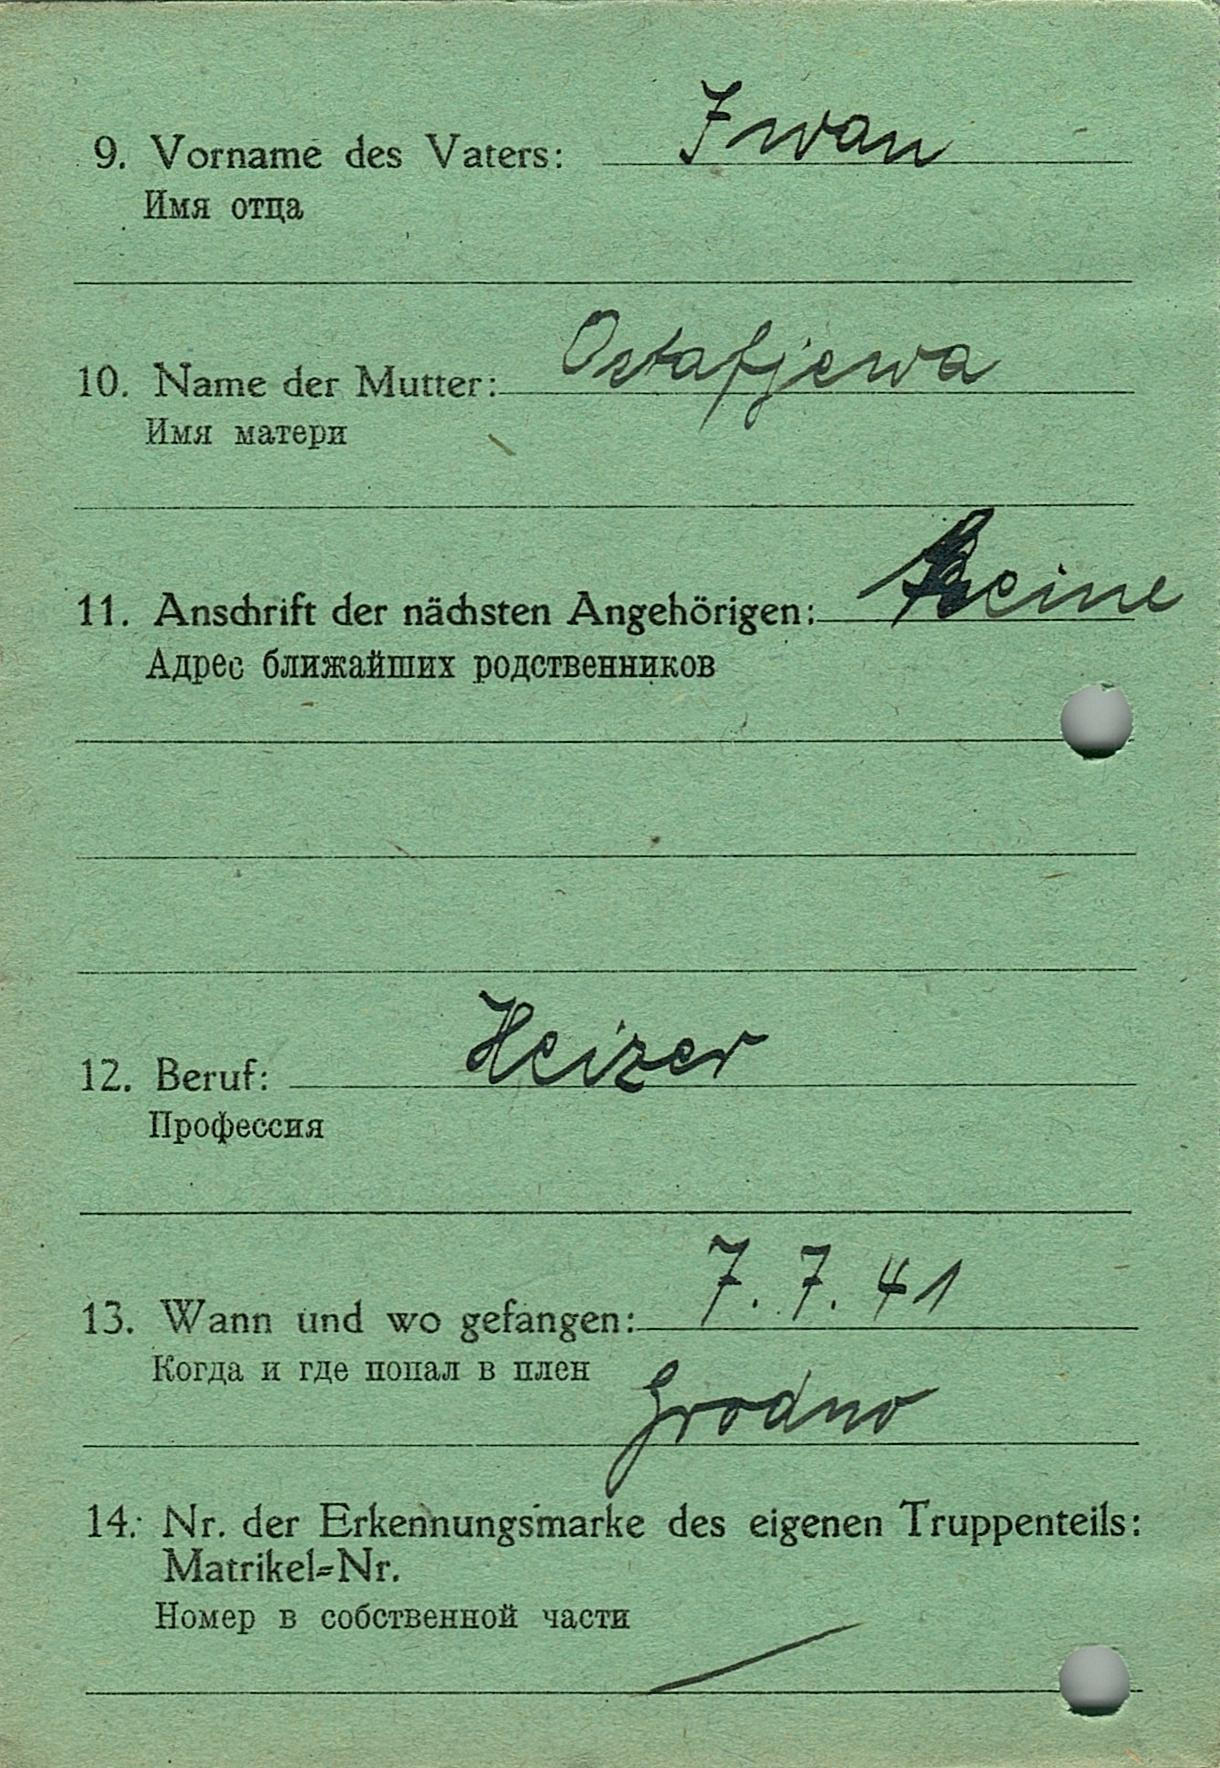 9. Vorname des Vaters: Iwan
Имя отца
10. Name der Mutter: Ostafjewa
Имя матери
11. Anschrift der nächsten Angehörigen: Keine
Адрес ближайших родственников
12. Beruf: Heizer
Профессия
13. Wann und wo gefangen: 7. 7. 41
Когда и где попал в плен
Grodno
14. Nr. der Erkennungsmarke des eigenen Truppenteils:
Matrikel=Nr.
Номер в собственной части